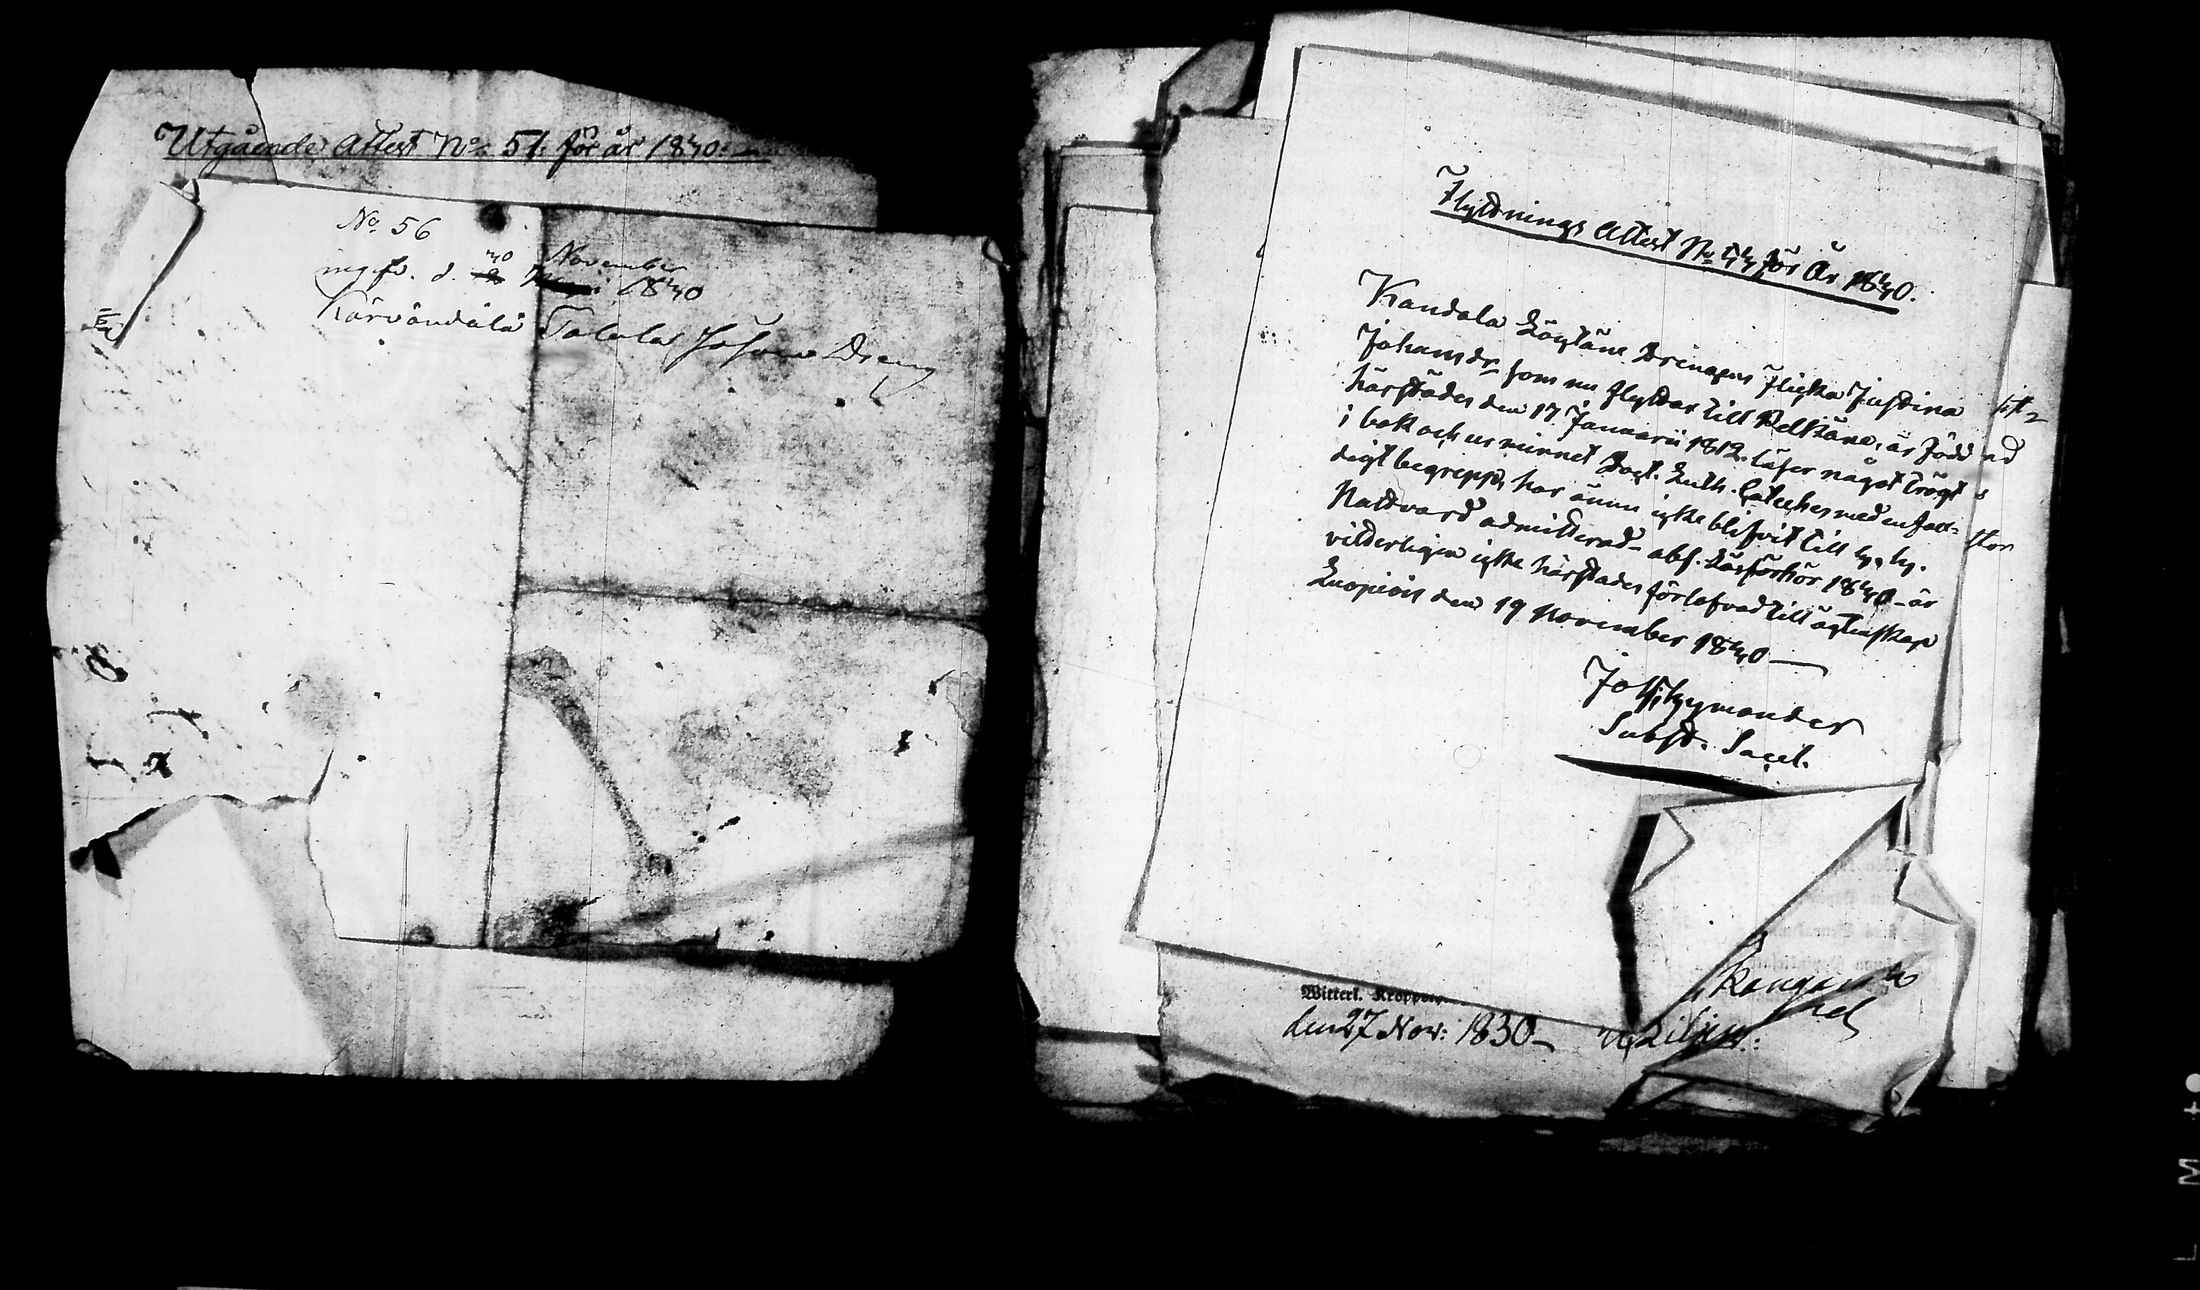 Utgående Attest No: 51. för år 1840.
No 56
November
ingifv. d. 30 1840
Kärvändälä Talala Johan Dreng
Flyttnings Attest No 44 för År 1840.
Kandala Löytäne Drängens Flicka Justina
Johansdr som nu flyttar till Pelkäne, är född
härstädes den 17 Januarii 1812. läser något trögt
i bok och ur minnet Doct. Luth. Cateches med en
digt begrepp, har ännu icke blifvit till h. h.
Nattvard admitterad - abs. Läsförhör 1840 - är
vitterligen icke härstädes förlofvad till äktenskap
Kuopiois den 19 November 1840
Joh Hymander
Subst. Sacel.
Witterl. Kroppens
den 27 Nov: 1830